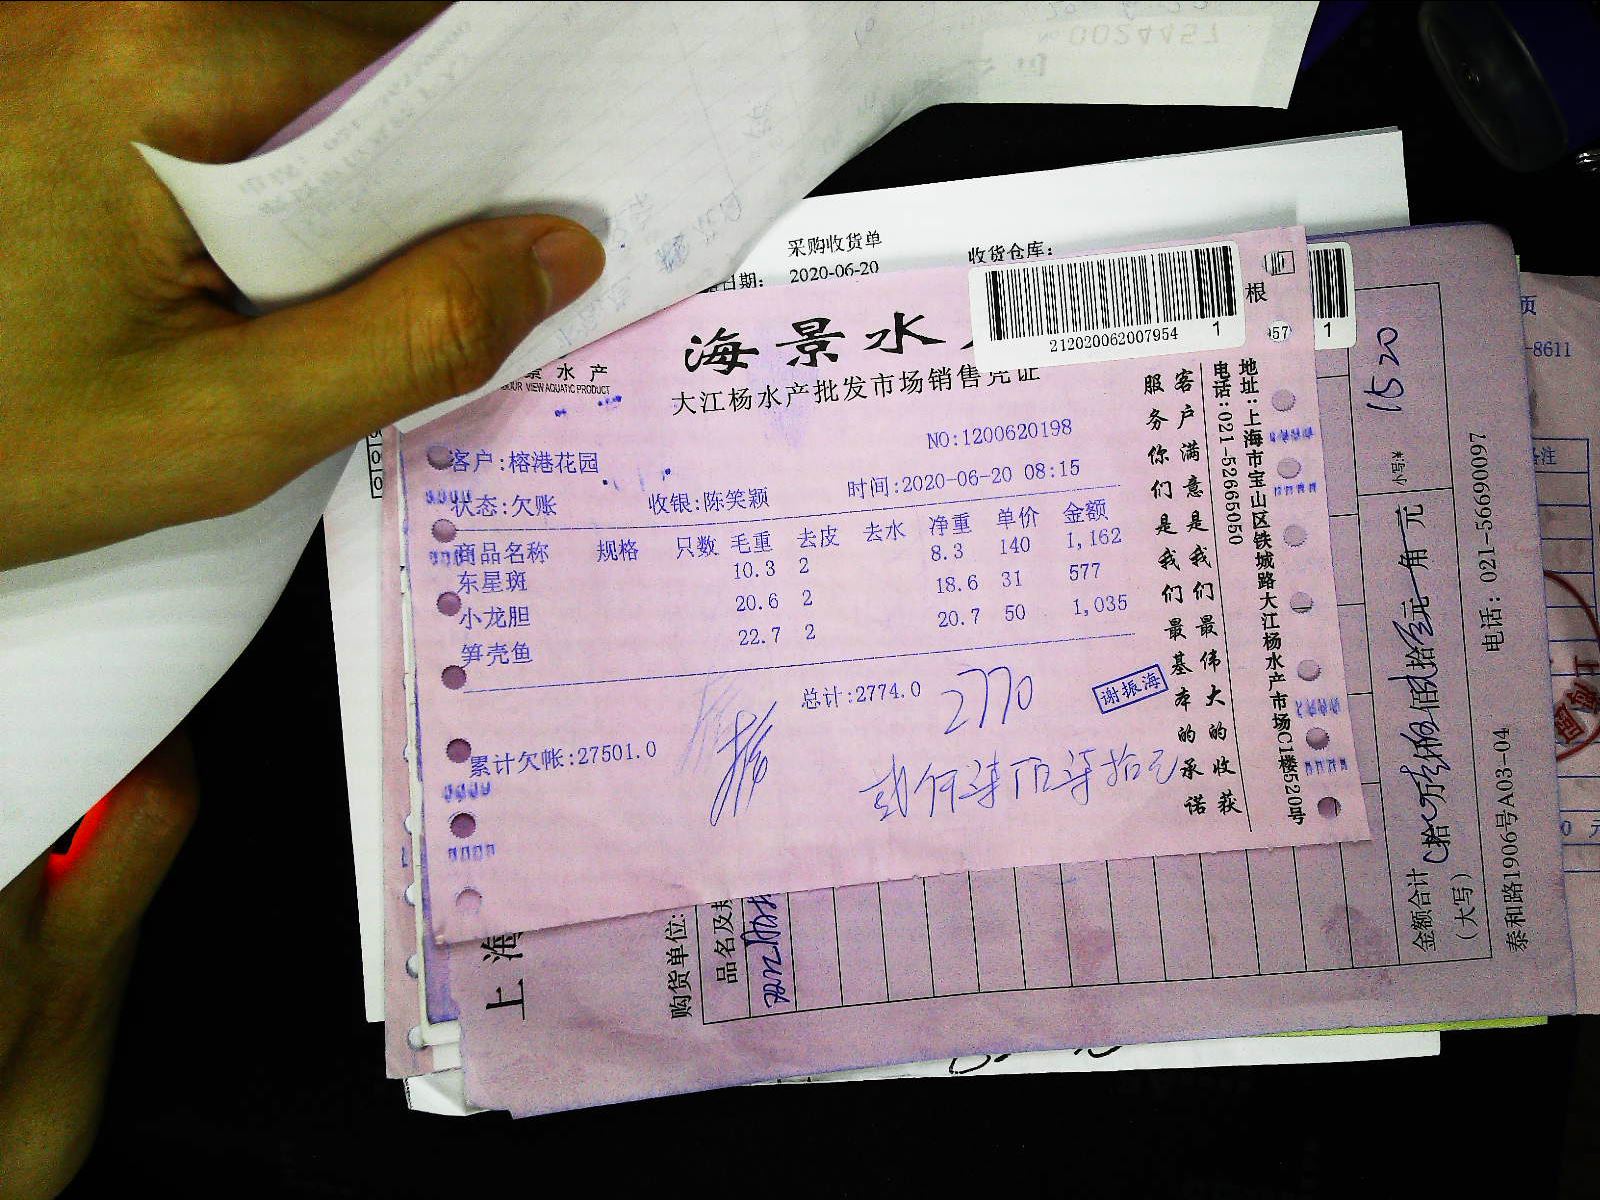 0024457
采购收货单
日期: 2020-06-20
收货仓库:
海景水
景水产
OUR VIEW AQUATIC PRODUCT
大江杨水产批发市场销售凭证
212020062007954 1
根
57 1
NO:1200620198
客户:榕港花园
状态:欠账 收银:陈笑颖 时间:2020-06-20 08:15
商品名称 规格 只数 毛重 去皮 去水 净重 单价 金额
东星斑 10.3 2 8.3 140 1,162
小龙胆 20.6 2 18.6 31 577
笋壳鱼 22.7 2 20.7 50 1,035
总计:2774.0
2770
谢振海
累计欠帐:27501.0
贰仟柒佰柒拾元
客户满意是我们最伟大的收获
服务你们是我们最基本的承诺
地址:上海市宝山区铁城路大江杨水产市场C1楼520号
电话:021-52665050
上海
购货单位:
品名及规
1520
小写:¥
金额合计
(大写)
元
角
泰和路1906号A03-04 电话: 021-56690097
页
-8611
备注
元